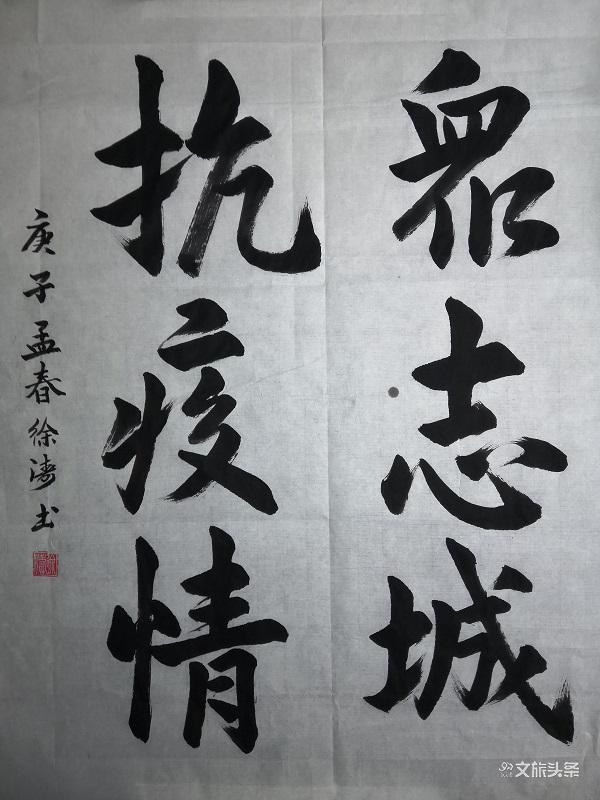 眾志城
抗疫情
庚子孟春徐涛书
文旅头条